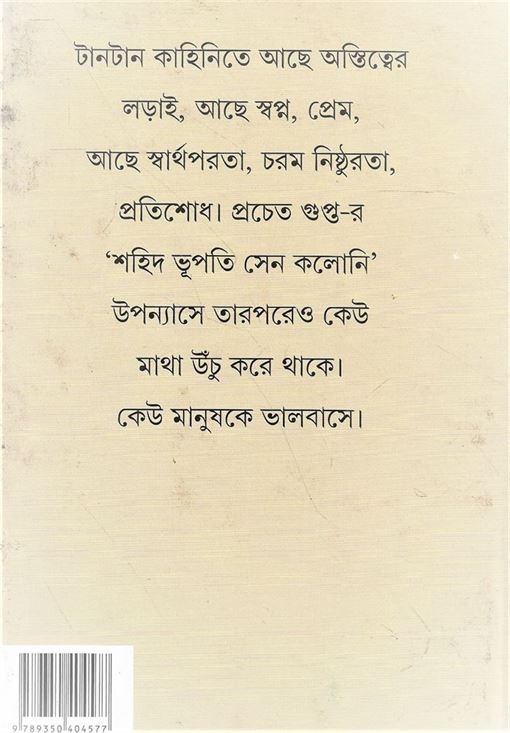 টানটান কাহিনিতে আছে অস্তিত্বের
লড়াই, আছে স্বপ্ন, প্রেম,
আছে স্বার্থপরতা, চরম নিষ্ঠুরতা,
প্রতিশোধ। প্রচেত গুপ্ত-র
‘শহিদ ভূপতি সেন কলোনি’
উপন্যাসে তারপরেও কেউ
মাথা উঁচু করে থাকে।
কেউ মানুষকে ভালবাসে।
9 789350 404577